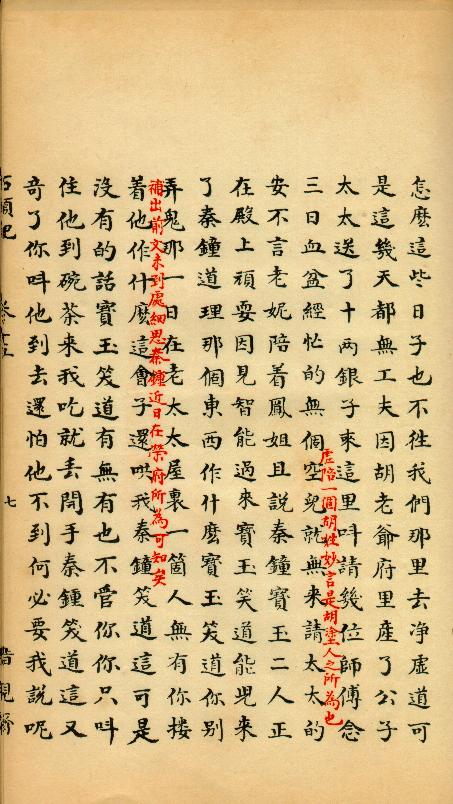 怎麽這些日子也不徃我們那里去净虛道可
是這幾天都無工夫因胡老爺府里産了公子
太太送了十两銀子來這里呌請幾位師傅念
三日血盆經忙的無個空兒就無来請太太的
虛陪一個胡姓妙言是胡塗人之所為也
安不言老妮陪着鳳姐且説秦鐘寳玉二人正
在殿上頑耍因見智能過來寳玉笑道能兒来
了秦鐘道理那個東西作什麽寳玉笑道你别
弄鬼那一日在老太太屋裏一箇人無有你摟
補出前文未到處細思秦鐘近日在榮府所為可知矣
着他作什麽這會子還哄我秦鐘笑道這可是
沒有的話寳玉笑道有無有也不管你你只呌
住他到碗茶来我吃就丢開手秦鐘笑道這又
竒了你呌他到去還怕他不到何必要我説呢
石頭記 卷十五 七 脂硯齋